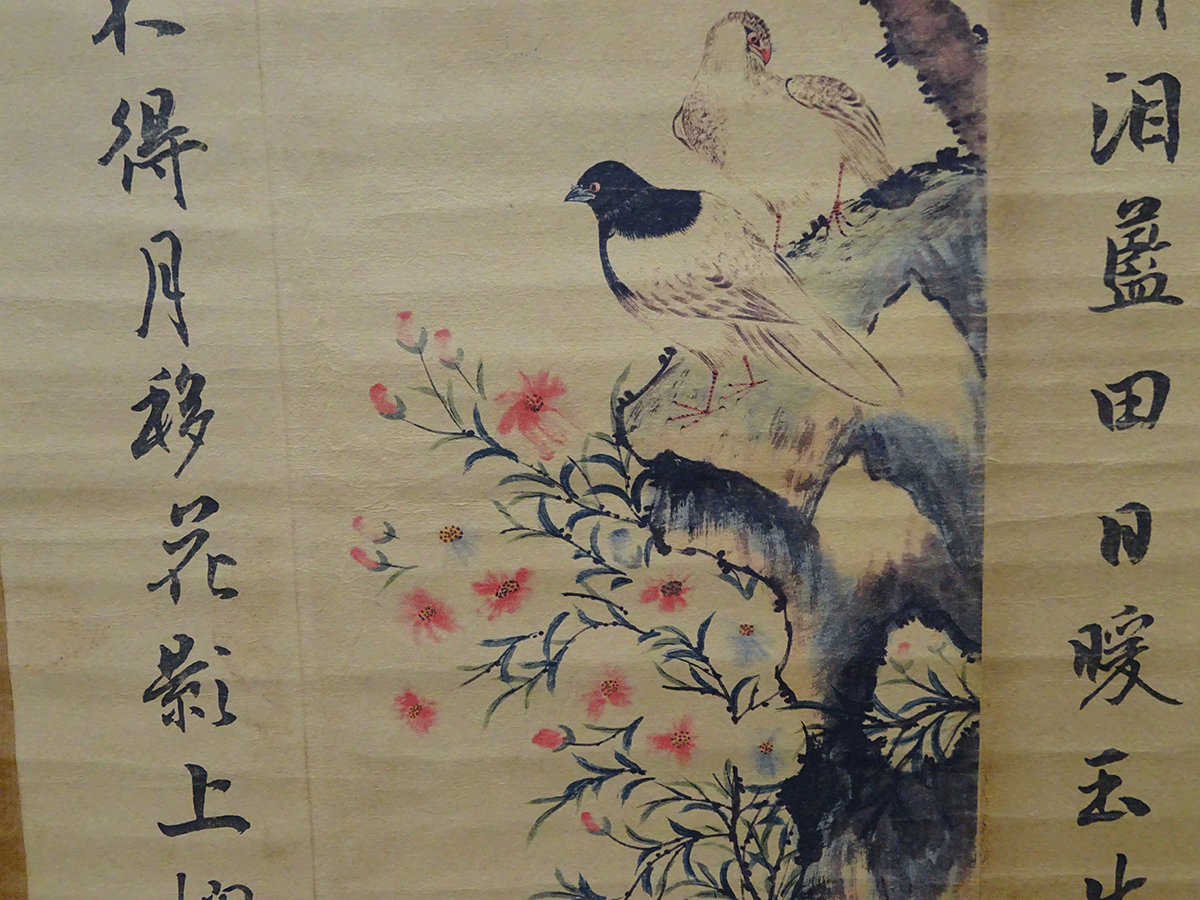 泪藍田日暖玉生
不得月移花影上